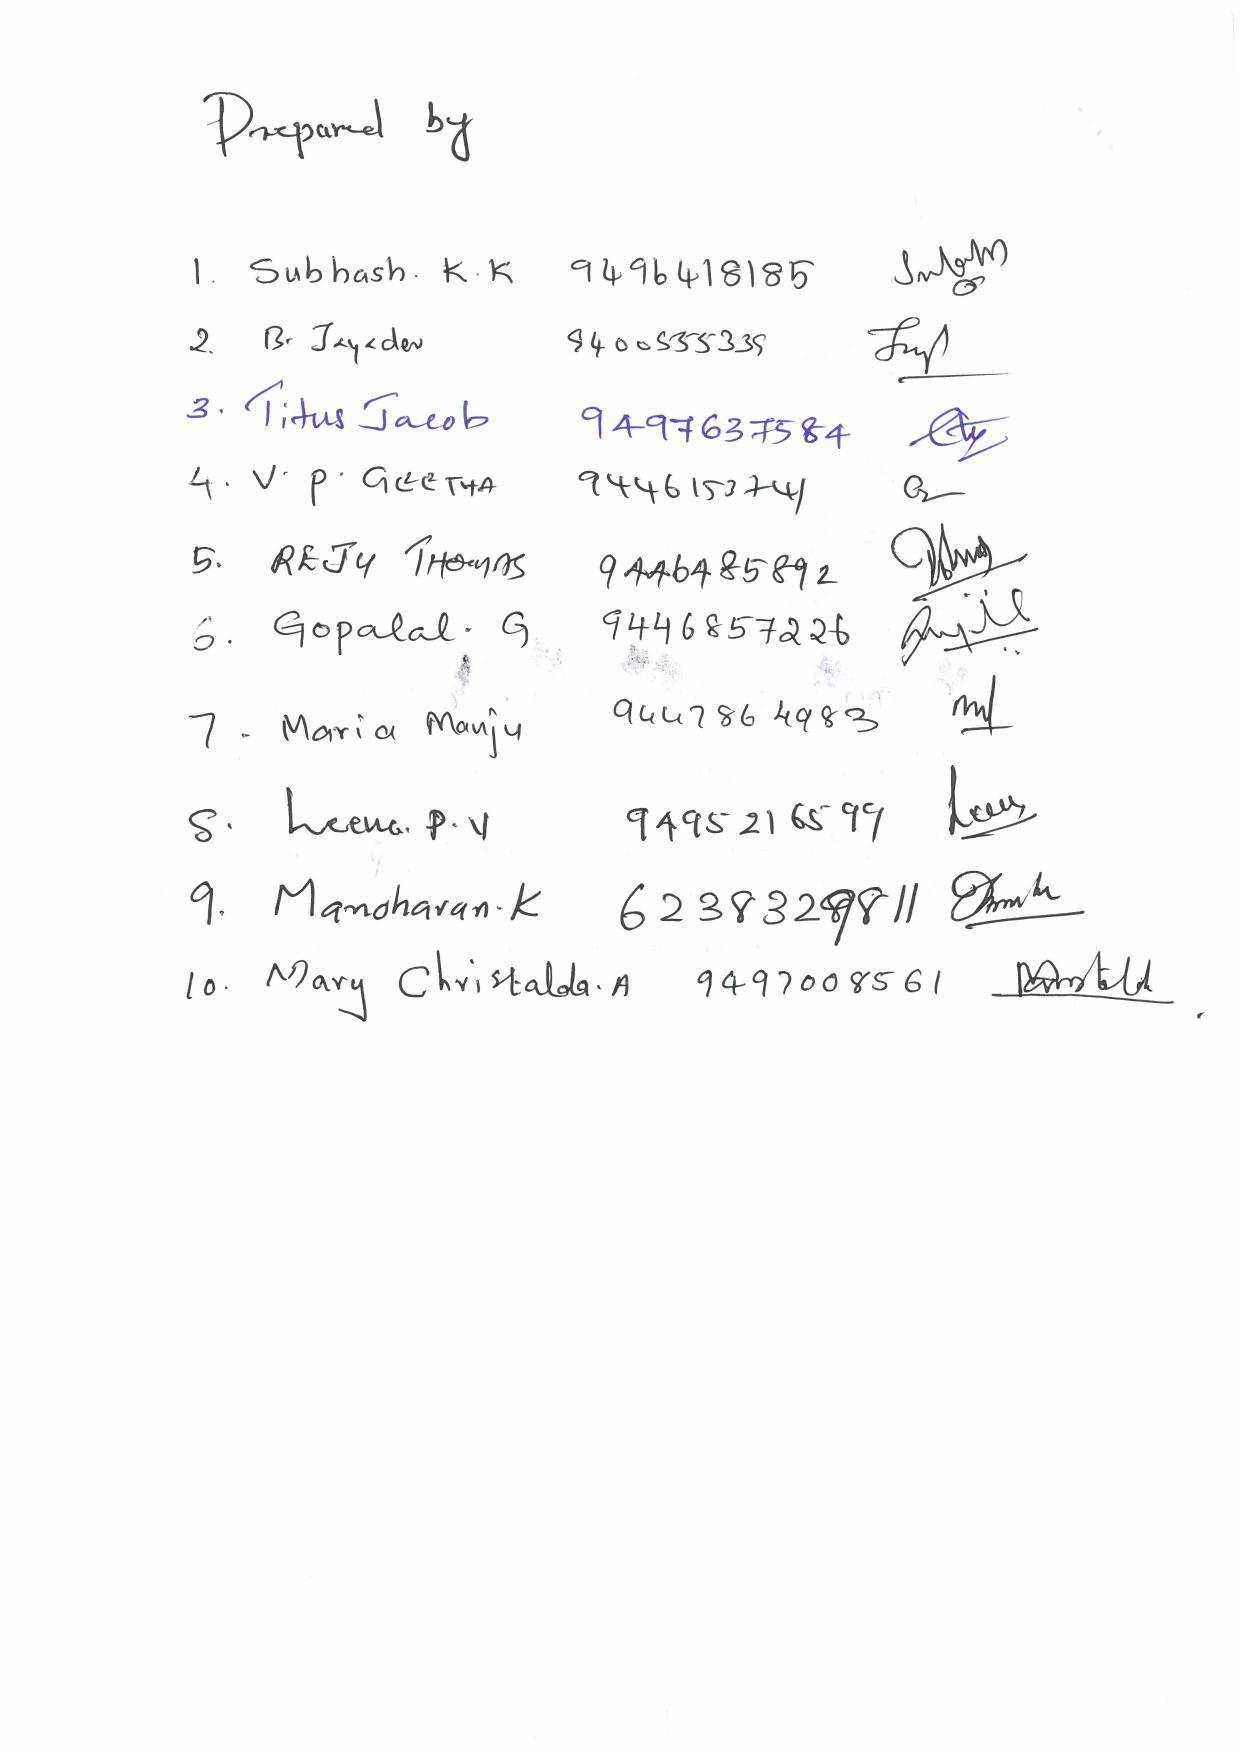 Prepared by
1. Subhash. K. K 9496418185
2. B. Jayadev 9400555339
3. Titus Jacob 9497637584
4. V. P. GEETHA 9446153741
5. REJY THOMAS 9446485892
6. Gopalal. G 9446857226
7. Maria Manju 9447864983
8. Leena. P. V 9495216599
9. Manoharan. K 6238329811
10. Mary Christalda. A 9497008561